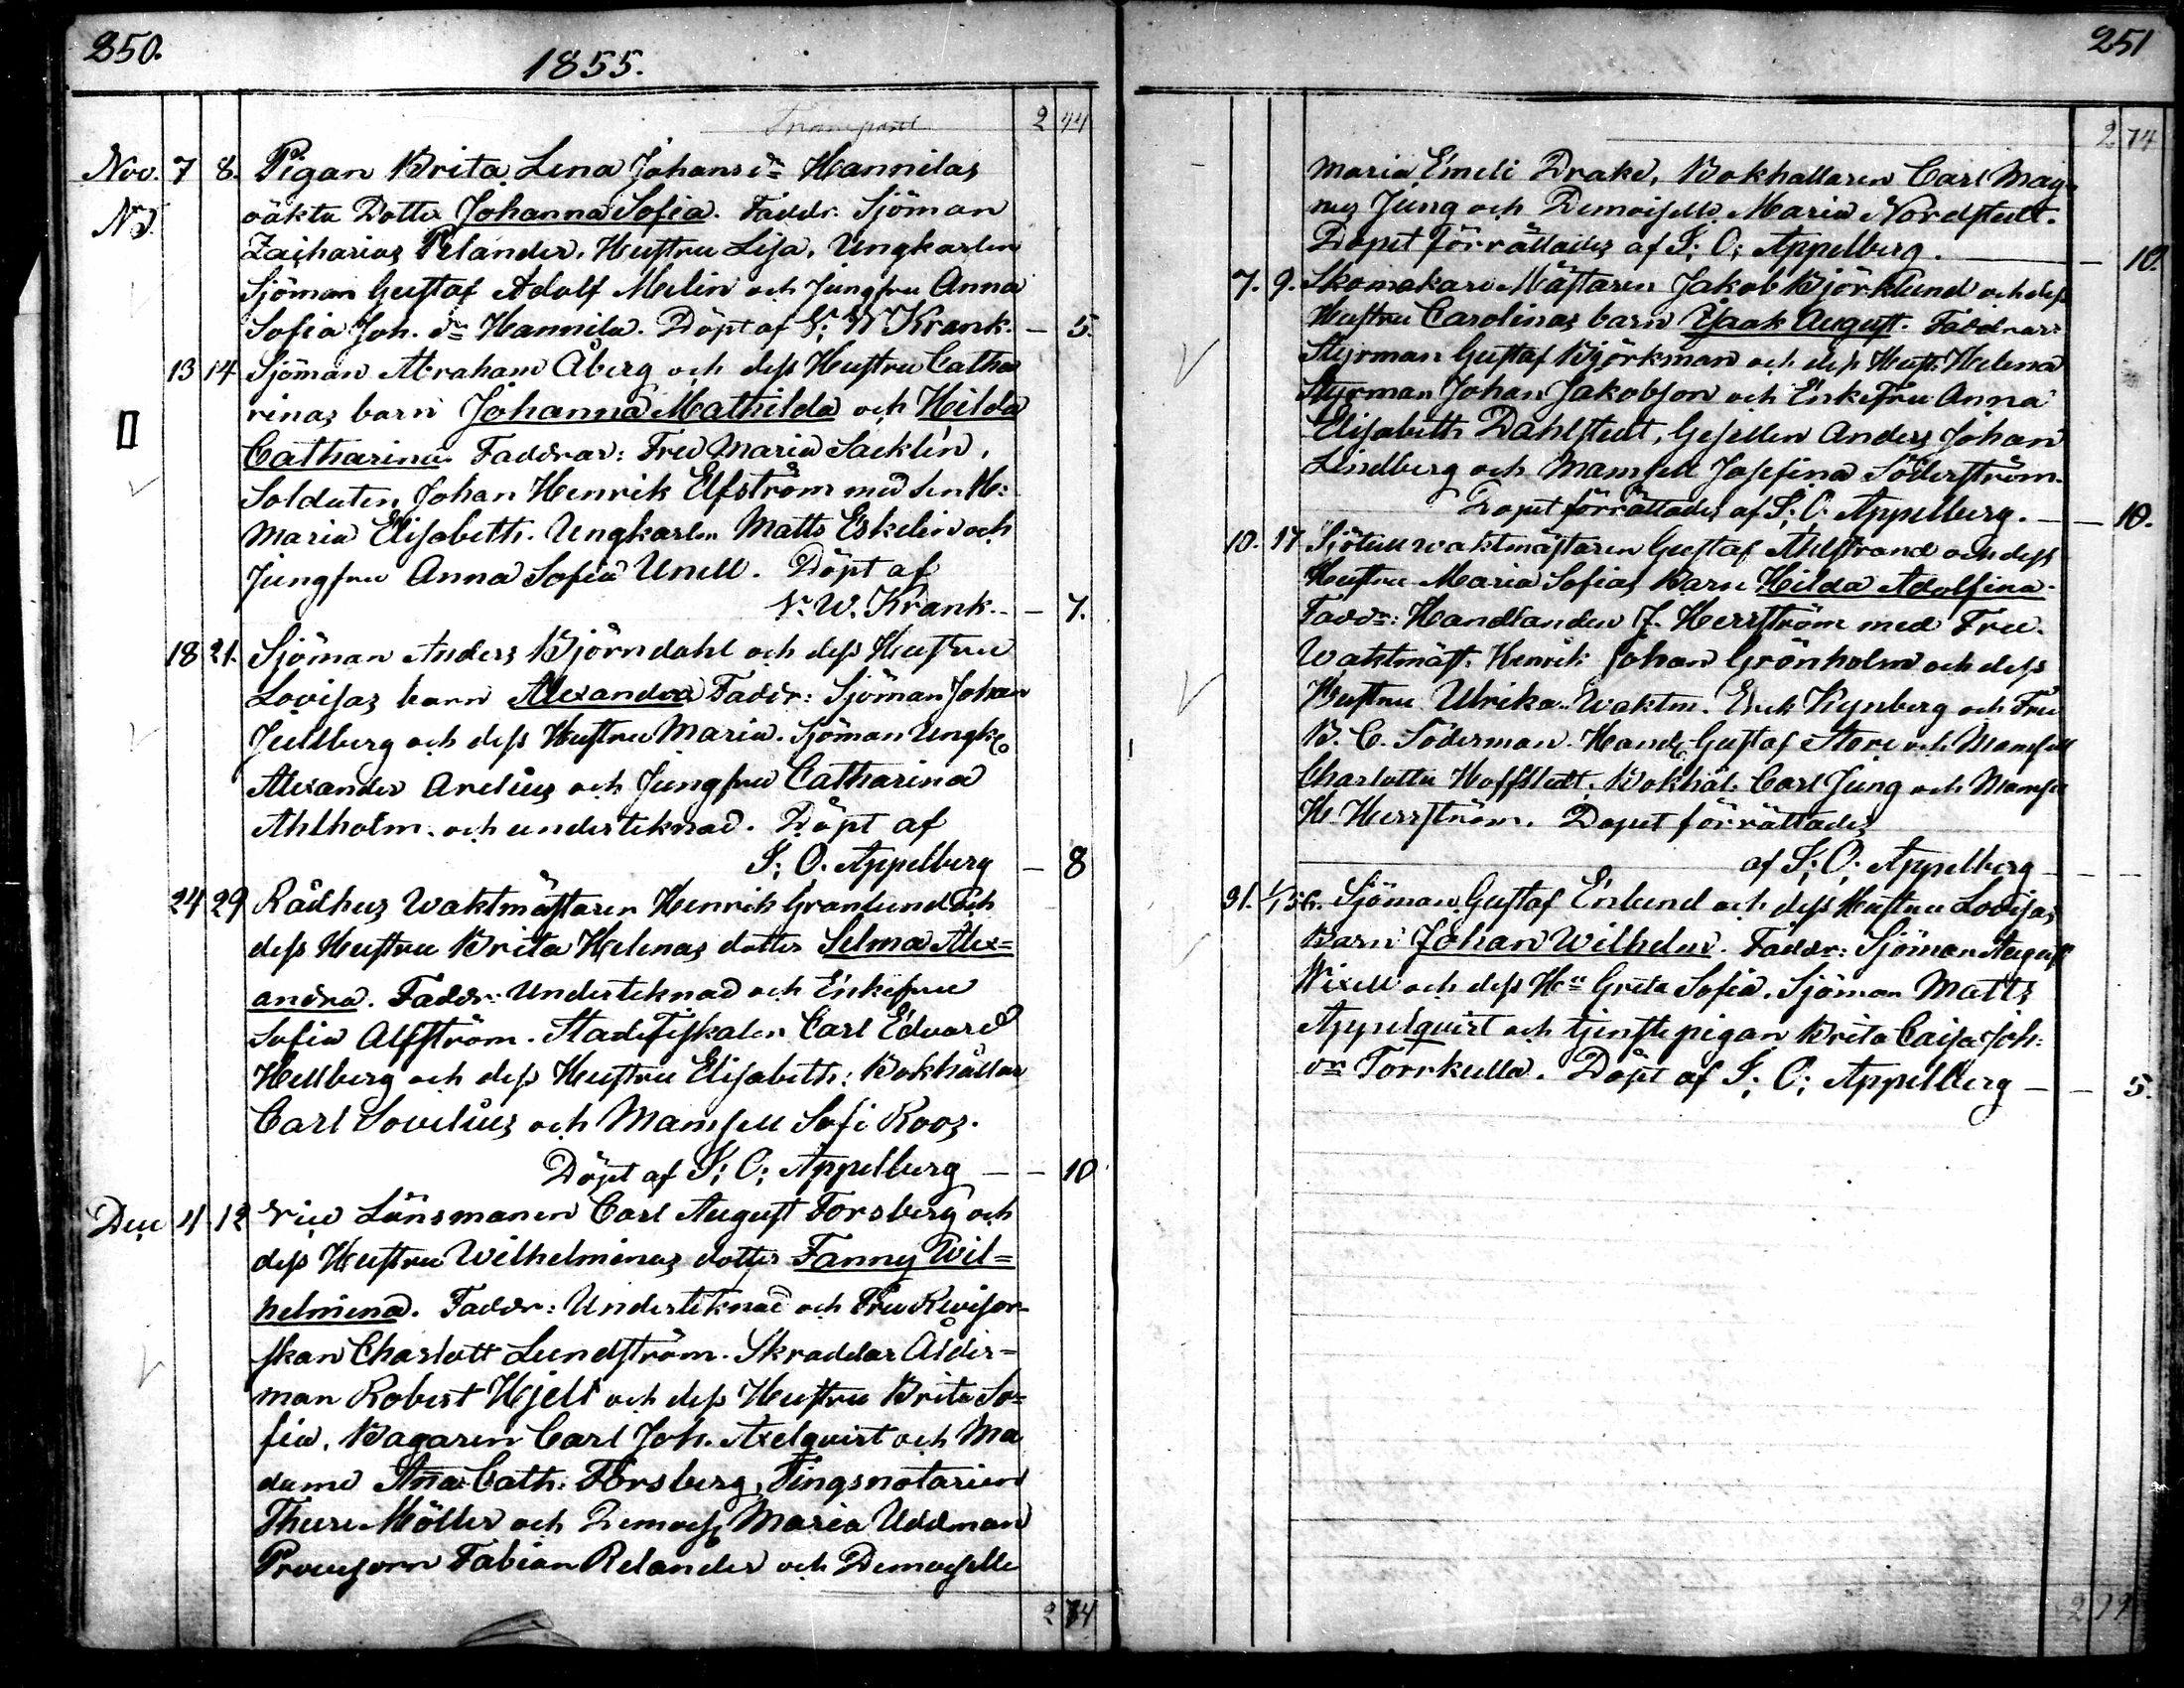 250.
1855.
Transport 2 44
Nov. 7 8. Pigan Brita Lena Johans dr Hannilas
oäkta Dotter Johanna Sofia. Faddr. Sjöman
Zacharias Relander, Hustru Lisa, Ungkarlen
Sjöman Gustaf Adolf Melin och Jungfru Anna
Sofia Joh. dr Hannila. Döpt af V. W Krank. — 5.
13 14 Sjöman Abraham Åberg och dess Hustru Catha
rinas barn Johanna Mathilda och Hilda
Catharina. Faddrar: Fru Maria Sacklén,
Soldaten Johan Henrik Elfström med sin H:
Maria Elisabeth. Ungkarlen Matts Eskelin och
Jungfru Anna Sofia Unell. Döpt af
V. W. Krank. — 7.
18 21. Sjöman Anders Björndahl och dess Hustru
Lovisas barn Alexandra Faddr: Sjöman Johan
Juslberg och dess Hustru Maria. Sjöman Ungk.
Alexander Arelius och Jungfru Catharina
Ahlholm. och underteknad. Döpt af
I; O. Appelberg — 8
24 29 Rådhus Waktmästaren Henrik Granlund och
dess Hustru Brita Helenas dotter Selma Alex=
andra. Faddr: Underteknad och Enkefru
Sofia Alfström. Stadsfiskalen Carl Edvard
Hellberg och dess Hustru Elisabeth: Bokhållar
Carl Sovelius och Mamsell Sofi Roos.
Döpt af I; O; Appelberg — — 10
Dec 4 12 Vice Länsmanen Carl August Forsberg och
dess Hustru Wilhelminas dotter Fanny Wil=
helmina. Faddr: Underteknad och Fru Revisor-
skan Charlott Lundström. Skräddar Ålder=
man Robert Hjelt och dess Hustru Brita So=
fia, Bagaren Carl Joh. Axelqvist och Ma
dame Ana Cath: Forsberg, Tingsnotarien
Thure Möller och Demois. Maria Uddman
Provisorn Fabian Relander och Demoiselle
2 74
251
2 74
Maria Emeli Drake, Bokhållaren Carl Mag-
nus Jung och Demoiselle Maria Nordstedt.
Dopet förrättades af I; O; Appelberg. — 10.
7. 9. Skomakare Mästaren Jakob Björklund och dess
Hustru Carolinas barn Isaak August. Faddrar:
Styrman Gustaf Björkman och dess Hust: Helena
Styrman Johan Jakobson och Enkefru Anna
Elisabeth Dahlstedt, Gesellen Anders Johan
Lindberg och Mamsell Josefina Söderström.
Dopet förrättades af I; O; Appelberg. — — 10.
10. 17 Sjötullwaktmästaren Gustaf Ahlstrand och dess
Hustru Maria Sofias Barn Hilda Adolfina.
Faddr: Handlanden J. Herrström med Fru.
Waktmäst. Henrik Johan Grönholm och dess
Hustru Ulrika. Waktm. Erik Kynberg och Fru
B. C. Söderman. Handl. Gustaf Store och Mamsell
Charlotta Hoffstedt. Bokhål. Carl Jung och Mamsell
H Herrström. Dopet förrättades
af I; O; Appelberg — —
31. 1/1 56. Sjöman Gustaf Enlund och dess Hustru Lovisas
Barn Johan Wilhelm. Faddr: Sjöman August
Wixell och dess Hu Greta Sofia. Sjöman Matts
Appelqvist och tjenstepigan Brita Caisa Joh:
dr Torrkulla. Döpt af I; O; Appelberg — — 5.